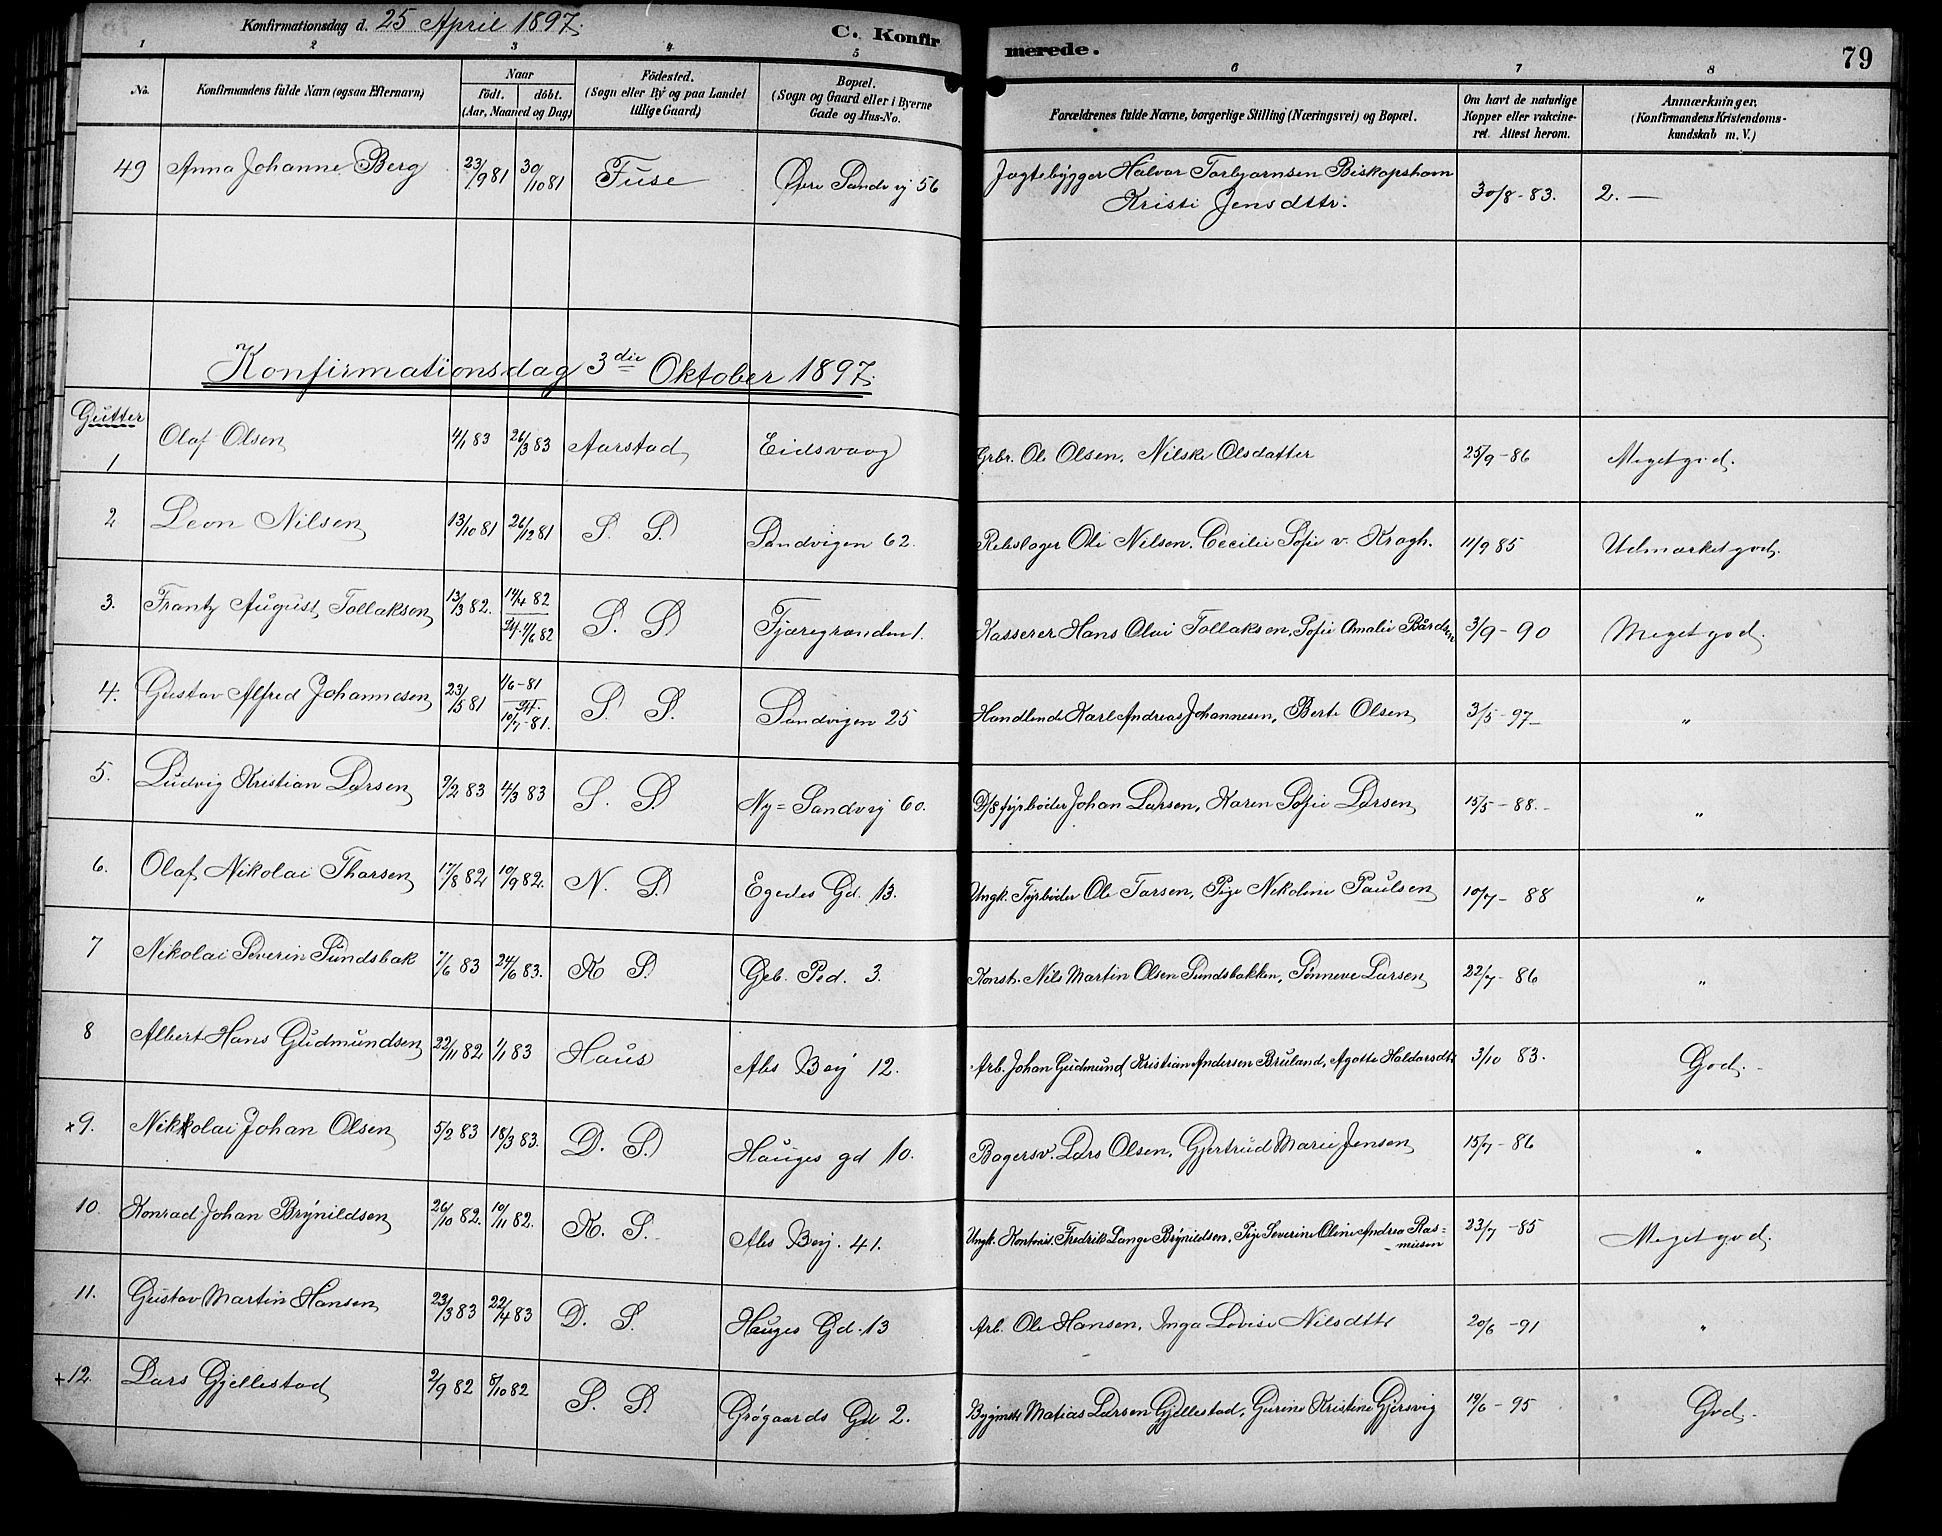 Konfirmationsdag d. 25 April 1897.
C. Konfirmerede.
79
1 2 3 4 5 6 7 8
No. | Konfirmandens fulde Navn (ogsaa Efternavn) | Naar födt. döbt. (Aar, Maaned og Dag) | Födested. (Sogn eller By og paa Landet tillige Gaard) | Bopæl. (Sogn og Gaard eller i Byerne Gade og Hus-No. | Forældrenes fulde Navne, borgerlige Stilling (Næringsvei) og Bopæl. | Om havt de naturlige Kopper eller vakcineret. Attest herom. | Anmærkninger. (Konfirmandens Kristendomskundskab m. V.)
49 | Anna Johanne Berg | 23/9 81 | 30/10 81 | Fuse | Øvre Sandvij 56 | Jagtebygger Halvor Torbjørnsen Biskopshavn Kristi Jensdttr. | 30/8-83. | 2. —
Konfirmationsdag 3die Oktober 1897.
Gutter
1 | Olaf Olsen | 4/1 83 | 26/3 83 | Aarstad | Eidsvaag | Grbr. Ole Olsen, Nilske Olsdatter | 25/9-86 | Meget god.
2 | Leon Nilsen | 13/10 81 | 26/12 81 | S. S. | Sandvigen 62. | Rebslager Ole Nilsen. Cecilie Sofie v. Kragh. | 11/9 85 | Udmærket god.
3. | Frantz August Tollaksen | 13/3 82. | 14/4 82 St. 11/6 82 | S. S. | Fjæregranden 1. | Kasserer Hans Olai Tollaksen, Sofie Amalie Bårdsen | 3/9-90 | Meget god.
4. | Gustav Alfred Johannesen | 23/5 81 | 1/6-81 St. 10/7-81. | S. S. | Sandvigen 25 | Handlende Karl Andreas Johannesen, Berte Olsen | 3/5-97- | "
5. | Ludvig Kristian Larsen | 9/2 83 | 4/3 83 | S. S. | Ny=Sandvij 60. | D/S fyrbøder Johan Larsen, Karen Sofie Larsen | 15/5-88.- | "
6. | Olaf Nikolai Tharsen | 17/8 82 | 10/9 82. | N. S. | Egedes Gd. 13. | Ungk. Fyrbøder Ole Tarsen, Pige Nikoline Paulsen | 10/7-88 | "
7 | Nikolai Severin Sundsbak | 7/6 83 | 24/6 83. | K S. | Geb. Ped. 3. | Konst. Nils Martin Olsen Sundsbakken, Sønneve Larsen | 22/7-86 | "
8 | Albert Hans Gudmundsen | 22/11 82 | 1/1 83 | Haus | Abs Boij 12. | Arb. Johan Gudmund Kristian Andersen Bruland, Agathe Haldorsdtr | 3/10 83. | God.-
x9. | Nikkolai Johan Olsen | 5/2 83 | 18/3 83. | D. S. | Hauges gd 10. | Bagersv. Lars Olsen, Gjertrud Marie Jensen | 15/7-86 | "
10. | Konrad Johan Brynildsen | 26/10 82. | 10/11 82. | K. S. | Abs Boij. 41. | Ungk. Kontorist. Fredrik Lange Brynildsen, Pige Severine Oline Andrea Rasmusen | 23/7-85 | Meget god.
11. | Gustav Martin Hansen | 23/3 83 | 22/4 83 | D. S. | Hauges Gd. 13 | Arb. Ole Hansen, Inga Lovise Nilsdttr | 20/6-91 | "
+12. | Lars Gjellestad | 2/9 82 | 8/10 82 | S. S. | Grøgaards Gd 2. | Bygmstr Matias Larsen Gjellestad, Gurine Kristine Gjersvig | 19/6-95 | God.-